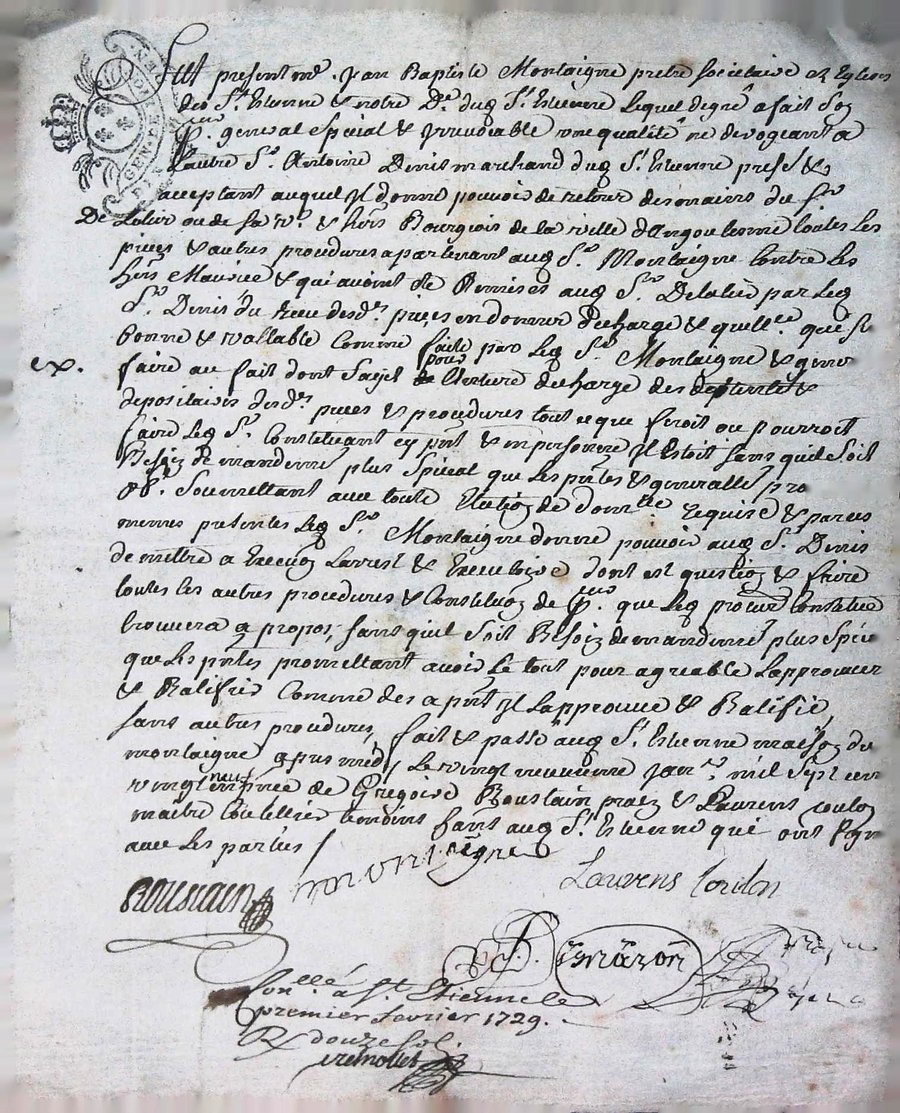 GEN DE
Fut present mre Jean Baptiste Montaigne pretre societaire ez Eglises
des St Etienne & notre De dud St Etienne lequel de gré a fait son
pr general special & irrevocable une qualité ne derogeant a
lautre Sr Antoine Denis marchand dud St Etienne prest &
acceptant auquel Il donne pouvoir de retirer des mains du Sr
De Lalier ou de sa ve & hoirs Bourgeois de la ville dangoulesme toutes les
pieces & autres procedures apartenant aud Sr Montaigne contre les
hoirs Maurice & qui avoient été Remises aud Sr Delalier par led
Sr Denis du Receu desdes pieces en donner decharge & quittce que s
bonne & vallable comme faite par led Sr Montaigne &
ex. faire au fait dont sagit pour decharge des
depositaires desdes pieces & procedures tout ce que feroit ou pourroit
faire led Sr Constituant ey pnt & en personne Il Estoit sans quil soit
Besoin de mandemt plus special que les pntes & generalle pro
obl. soumettant avec toute Election de domlle requise & par ces
memes presentes led Sr Montaigne donne pouvoir aud Sr Denis
de mettre a Execuon Larrest & Executoire dont est question & faire
toutes les autres procedures & Constituon de pr que led procur Constitué
trouvera a propos, sans quil soit Besoin de mandemt plus spéci
que les pntes promettant avoir le tout pour agreable Lapprouver
& Ratiffier Comme des a pnt Il Lapprouve & Ratifie,
sans autres procedures, fait & passé aud St Etienne maison du
montaigne apres midy Le vingt neuvieme janr mil sept cen
vingt neuf en pnce de Gregoire Roustain praen & Laurens Coulon
maitre Coutellier temoins hants aud St Etienne qui ont sign
avec les parties /
Roustain montaigne Laurens Coulon
Conllé a St Etienne le
premier fevrier 1729.
R douze sol.